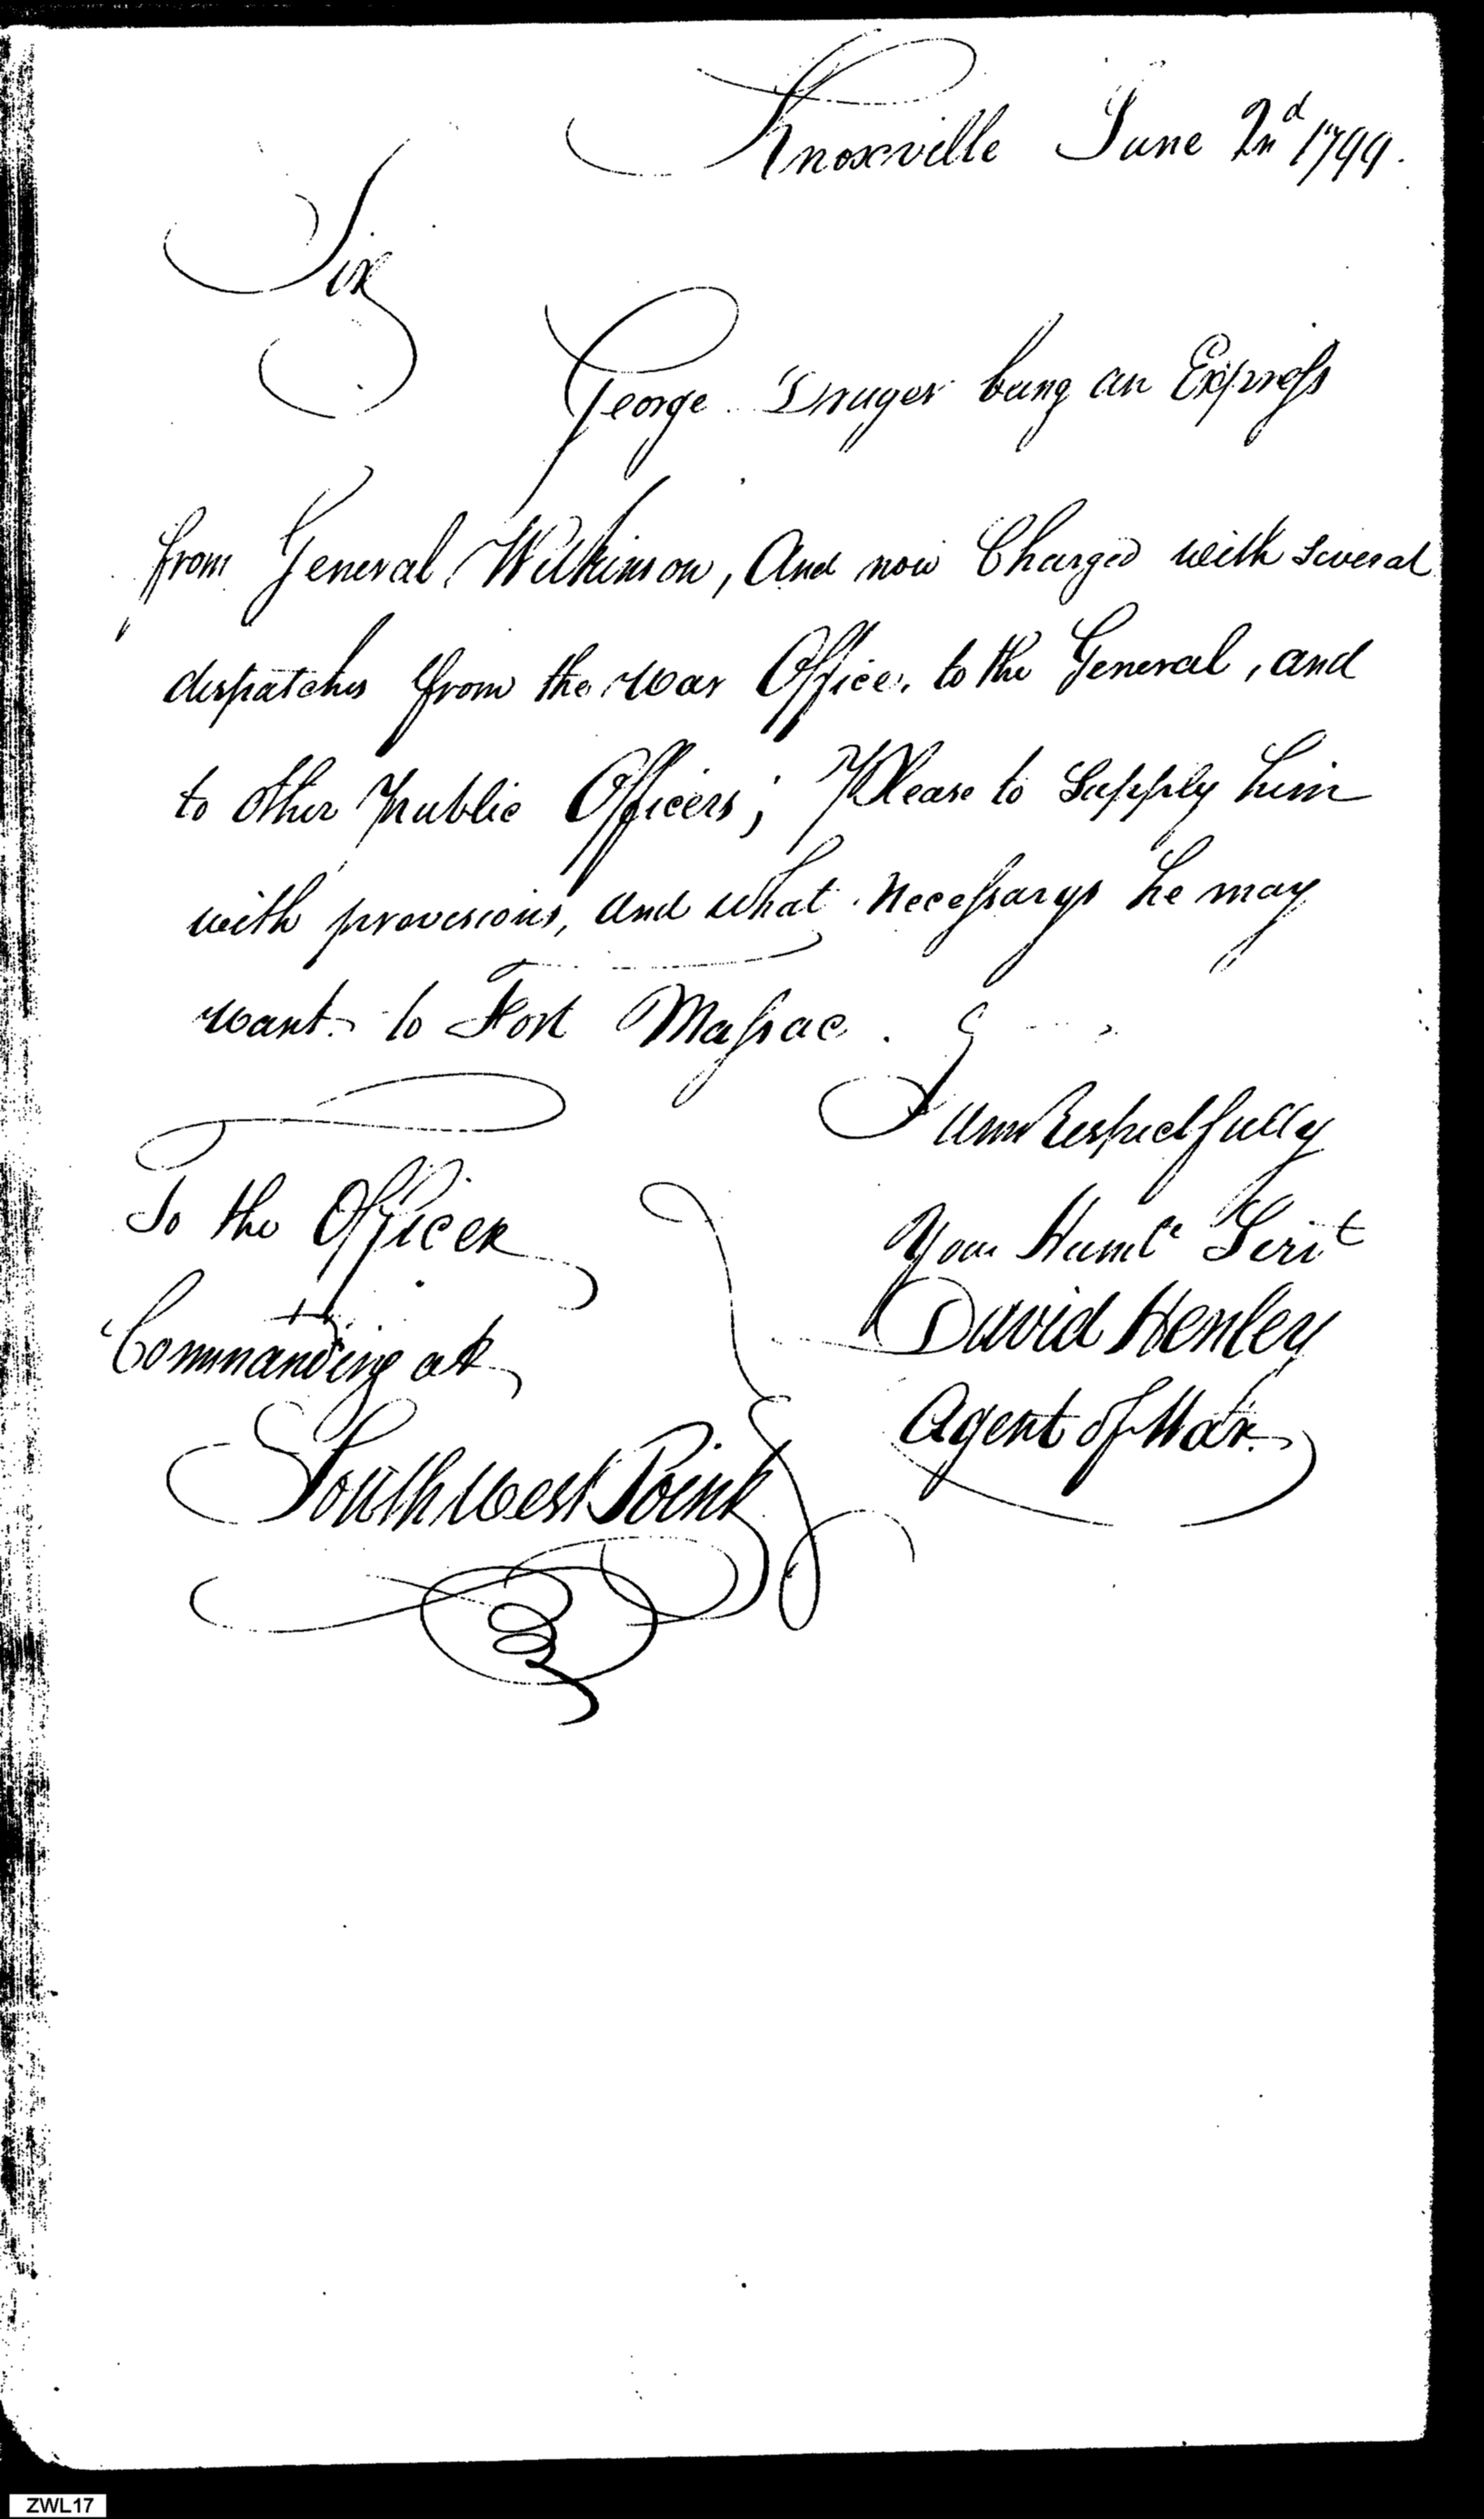 Knoxville June 2nd 1799.
Sir
George Druger being an Express
from General Wilkinson, And now Charged with several
dispatches from the War Office, to the General, and
to other Public Officers; Please to Supply him
with provisions, and what necessarys he may
want to Fort Massac.
I am Respectfully
Your Humle Servt
David Henley
Agent of War.
To the Officer
Commanding at
South West Point
ZWL17